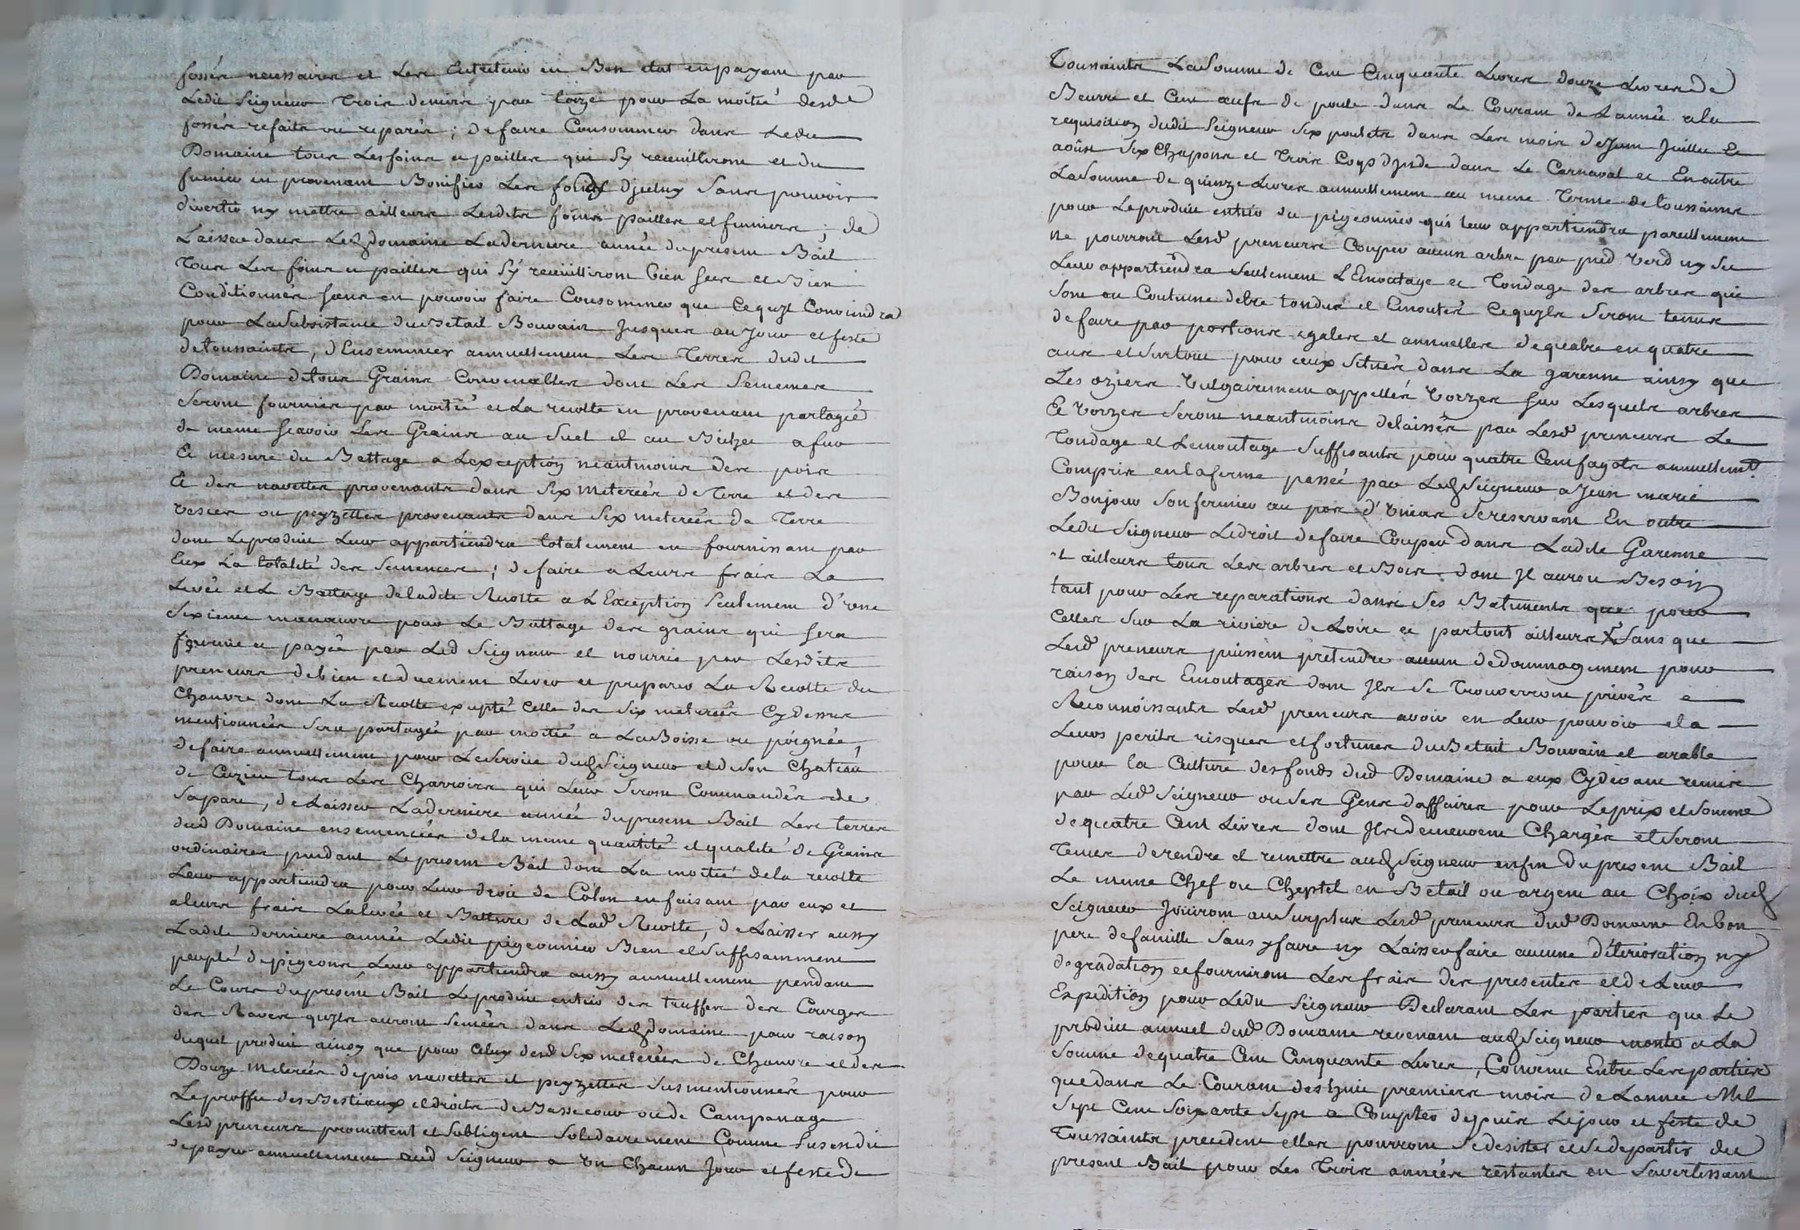 fossés necessaires et Les Entretenir en Bon etat en payant par
Ledit Seigneur Trois deniers par toize pour La moitié desd.
fossés refaits ou reparés ; de faire Consommer dans Ledit
Domaine tous Les foins et pailles qui s'y recueilliront et du
fumier en provenant Bonifier Les fonds d'jceluy sans pouvoir
divertir ny mettre ailleurs Lesdits foins pailles et fumiers ; de
Laisser dans Led. domaine La derniere année du present Bail
Tous Les foins et pailles qui s'y recueilliront bien secs et Bien
Conditionnés sans en pouvoir faire Consommer que Ce qu'il Conviendra
pour La Subsistance du Betail Bouvain Jusques au Jour et feste
de toussaints, d'Ensemencer annuellement Les Terres dudit
Domaine de tous Grains Convenables dont Les Semences
Seront fournies par moitié et La recolte en provenant partagée
de meme sçavoir Les Grains au Suel et au Bichet a fur
Et mesure du Battage a L'exception neantmoins des pois
Et des navettes provenants dans six meterées de Terre et des
vesces ou peyzettes provenants dans Six meterées de Terre
dont Le produit Leur appartiendra totalement en fournissant par
Eux La totalité des semences ; de faire a Leurs frais La
Levée et Le Battage de ladite Recolte a L'Exception Seulement d'une
Sixieme manœuvre pour Le Battage des grains qui sera
fournie et payée par Led Seigneur et nourrie par Lesdits
preneurs de bien et duement Lever et preparer La Recolte du
Chanvre dont La Recolte excepté Celle des Six meterées Cy dessus
mentionnées Sera partagée par moitié a La Boisse ou poignée,
de faire annuellement pour Le Service dud. Seigneur et de son Chateau
de Cuzieu tous Les Charrois qui Leur Seront Commandés de
Sa part, de Laisser La derniere année du present Bail Les terres
dud Domaine ensemencées de la meme quantité et qualité de Grains
ordinaires pendant Le present Bail dont La moitié de la recolte
Leur appartiendra pour Leur droit de Colon en faisant par eux et
a leurs frais La levée et Batture de Lad. Recolte, de Laisser aussy
Ladite derniere année Ledit pigeonnier Bien et Suffisamment
peuplé de pigeons Leur appartiendra aussy annuellement pendant
Le Cours du present Bail Le produit entier des truffes des Courges
des Raves qu'ils auront semées dans Led. domaine pour raison
duquel produit ainsy que pour Celuy desd Six meterées de Chanvre et des
Douze meterées de pois navettes et peyzettes susmentionnés pour
Le proffit des Bestiaux et droits de Bassecour ou de Campanage
Lesd preneurs promettent et S'obligent Solidairement Comme Sus est dit
de payer annuellement aud Seigneur a Un Chacun Jour et feste de
Toussaints La Somme de Cent Cinquante Livres douze Livres de
Beurre et Cent œufs de poule dans Le Courant de L'année a la
requisition dudit Seigneur Six poulets dans Les mois de Juin Juillet Et
aoust Six Chapons et Trois Coqs d'Jnde dans Le Carnaval et En outre
La Somme de quinze Livres annuellement au meme Terme de toussaints
pour Le produit entier du pigeonnier qui leur appartiendra pareillement
ne pourront Lesd. preneurs Couper aucun arbre par pied verd ny Sec
Leur appartiendra Seulement L'Emoutage et Tondage des arbres qui
Sont en Coutume d'être tondus et Emoutés Ce qu'ils Seront tenus
de faire par portions egales et annuelles de quatre en quatre
ans et Surtout pour ceux Situés dans La garenne ainsy que
Les oziers Vulgairement appellés Vorzes Sur Lesquels arbres
Et Vorzes seront neantmoins delaissés par Lesd. preneurs Le
Tondage et L'emoutage Suffisants pour quatre Cent fagots annuellement
Compris en la ferme passée par Led. Seigneur a Jean marie
Bonjour Son fermier au port d'Unias Se reservant En outre
Ledit Seigneur Le droit de faire Couper dans Ladite Garenne
et ailleurs tous Les arbres et Bois dont Jl aura Besoin
tant pour Les reparations dans Ses Batiments que pour
Celles Sur La riviere de Loire et partout ailleurs Sans que
Lesd. preneurs puissent pretendre aucun dedommagement pour
raison des Emoutages dont Jls Se Trouverront privés
Reconnoissants Lesd. preneurs avoir en Leur pouvoir et a
Leurs perils risques et fortunes du Betail Bouvain et arable
pour la Culture des fonds dud Domaine a eux Cy devant remis
par Led. Seigneur ou Ses Gens d'affaires pour Le prix et Somme
de quatre Cent Livres dont Jls demeurent Chargés et Seront
Tenus de rendre et remettre aud. Seigneur en fin du present Bail
Le meme Chef ou Cheptel en Betail ou argent au Choix dud.
Seigneur Jouiront au Surplus Lesd. preneurs dud. Domaine En bon
pere de famille Sans y faire ny Laisser faire aucune déterioration ny
degradation et fourniront Les frais des presentes et de Leur
Expédition pour Ledit Seigneur Declarant Les parties que Le
produit annuel dud. Domaine revenant aud. Seigneur monte a La
Somme de quatre Cent Cinquante Livres, Convenu Entre Les parties
que dans Le Courant des huit premiers mois de L'année Mil
Sept Cent Soixante Sept a Compter depuis Le jour et feste de
Toussaints precedent elles pourront Se desister et Se departir du
present Bail pour Les Trois années restantes en S'avertissant